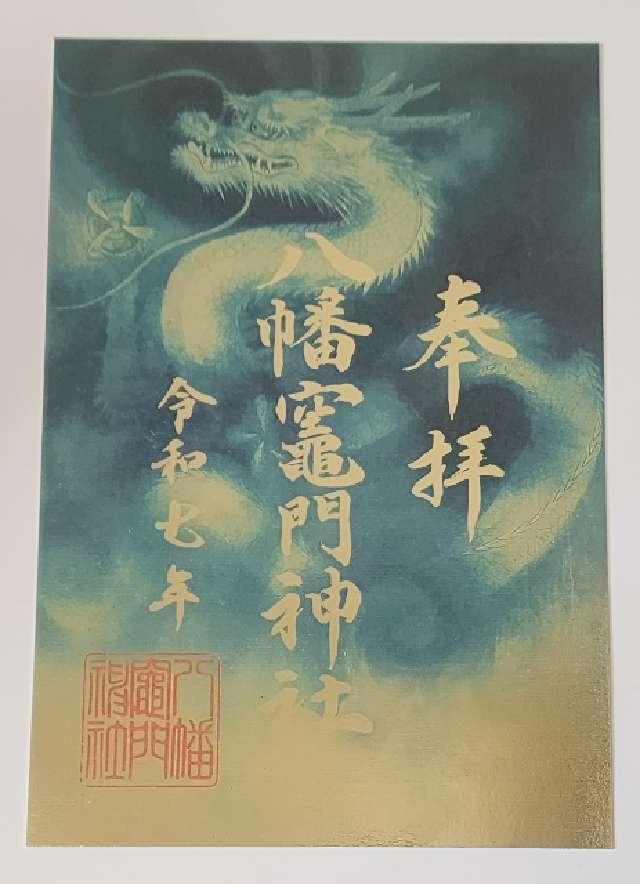 奉拝
八幡竈門神社
令和七年
八幡
竈門
神社